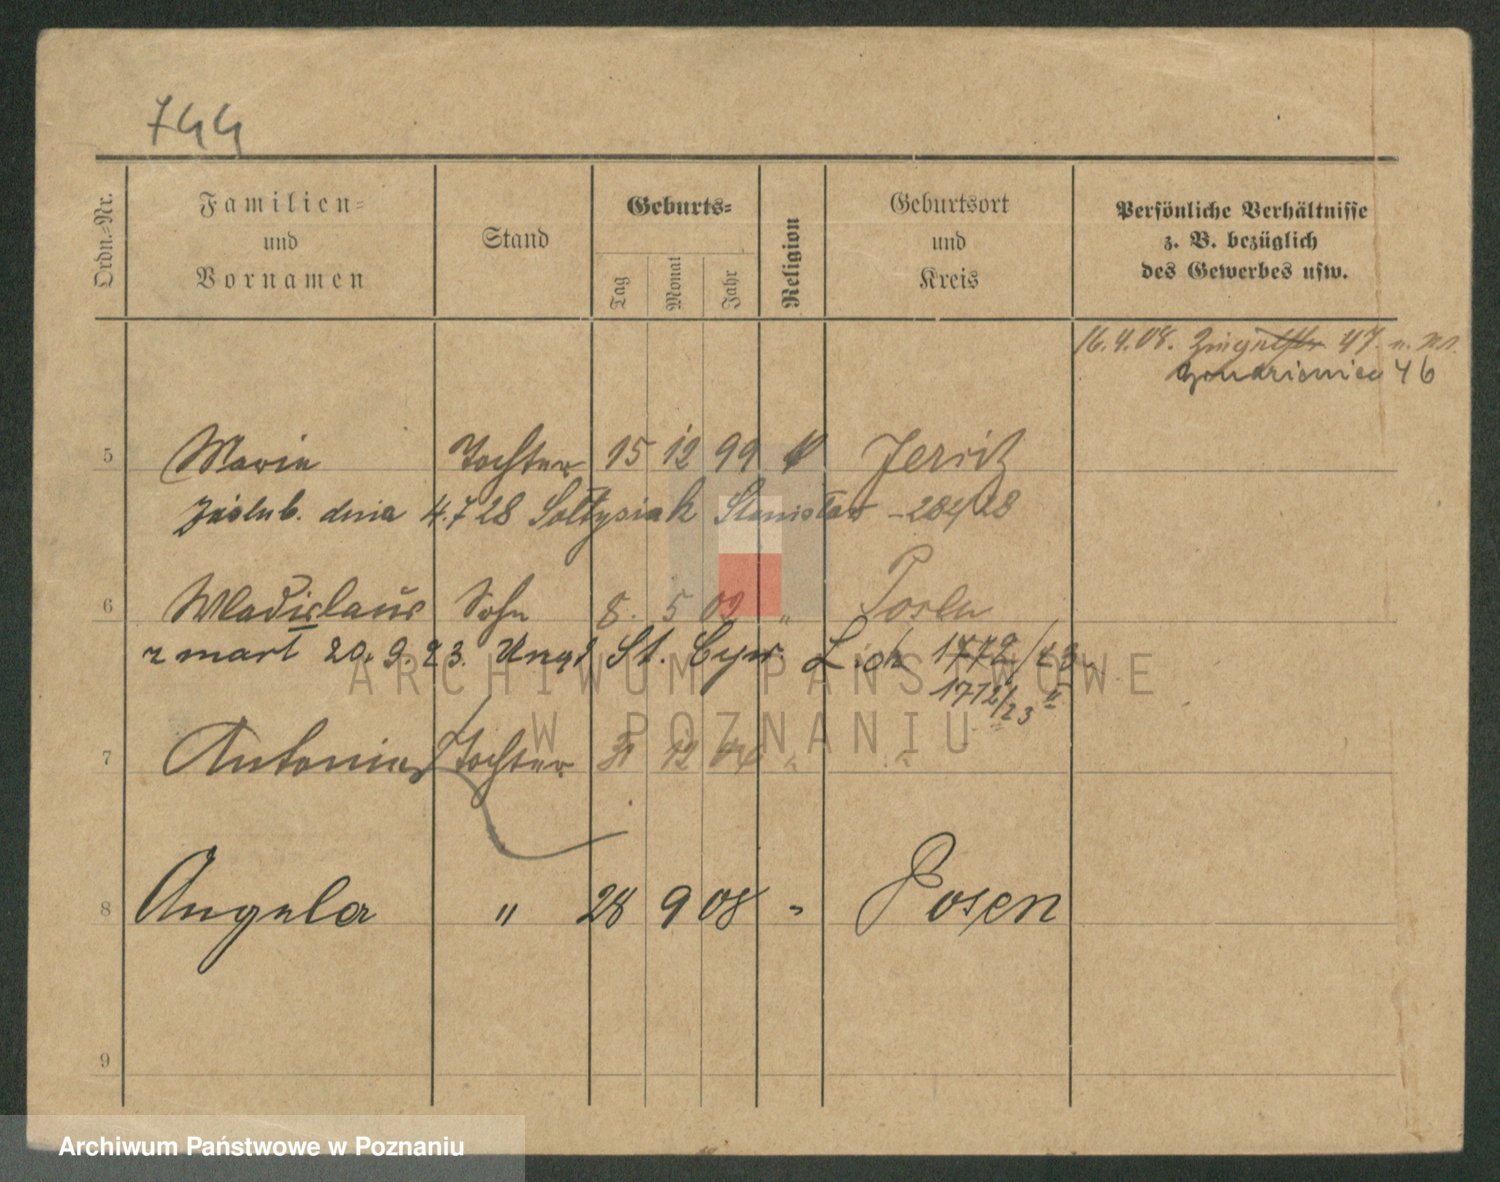 744
Ordn.-Nr.
Familien-
und
Vornamen
Stand
Geburts-
Tag
Monat
Jahr
Religion
Geburtsort
und
Kreis
Persönliche Verhältnisse
z. B. bezüglich
des Gewerbes usw.
16.4.08. 47.
46
5 Maria Tochter 15 12 99 Jersitz
zaślub. dnia 4.7 28 Sołtysiak Stanisław - 284/28
6 Wladislaus Sohn 8. 5 02 " Posen
zmarł 20.9.23. Urząd St. Cyw. 1772/23
1712/23 II
7 Antonina Tochter 31 12 " "
8 Angela " 28 9 08 " Posen
9
ARCHIWUM PAŃSTWOWE
W POZNANIU
Archiwum Państwowe w Poznaniu